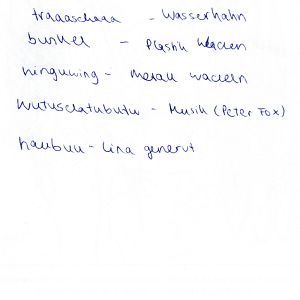 traaaschaaa - Wasserhahn
bunkel - Plastik wackeln
ninguwing - Metall wackeln
wutuschatubutu - Musik (Peter Fox)
haubuu - Lina genervt